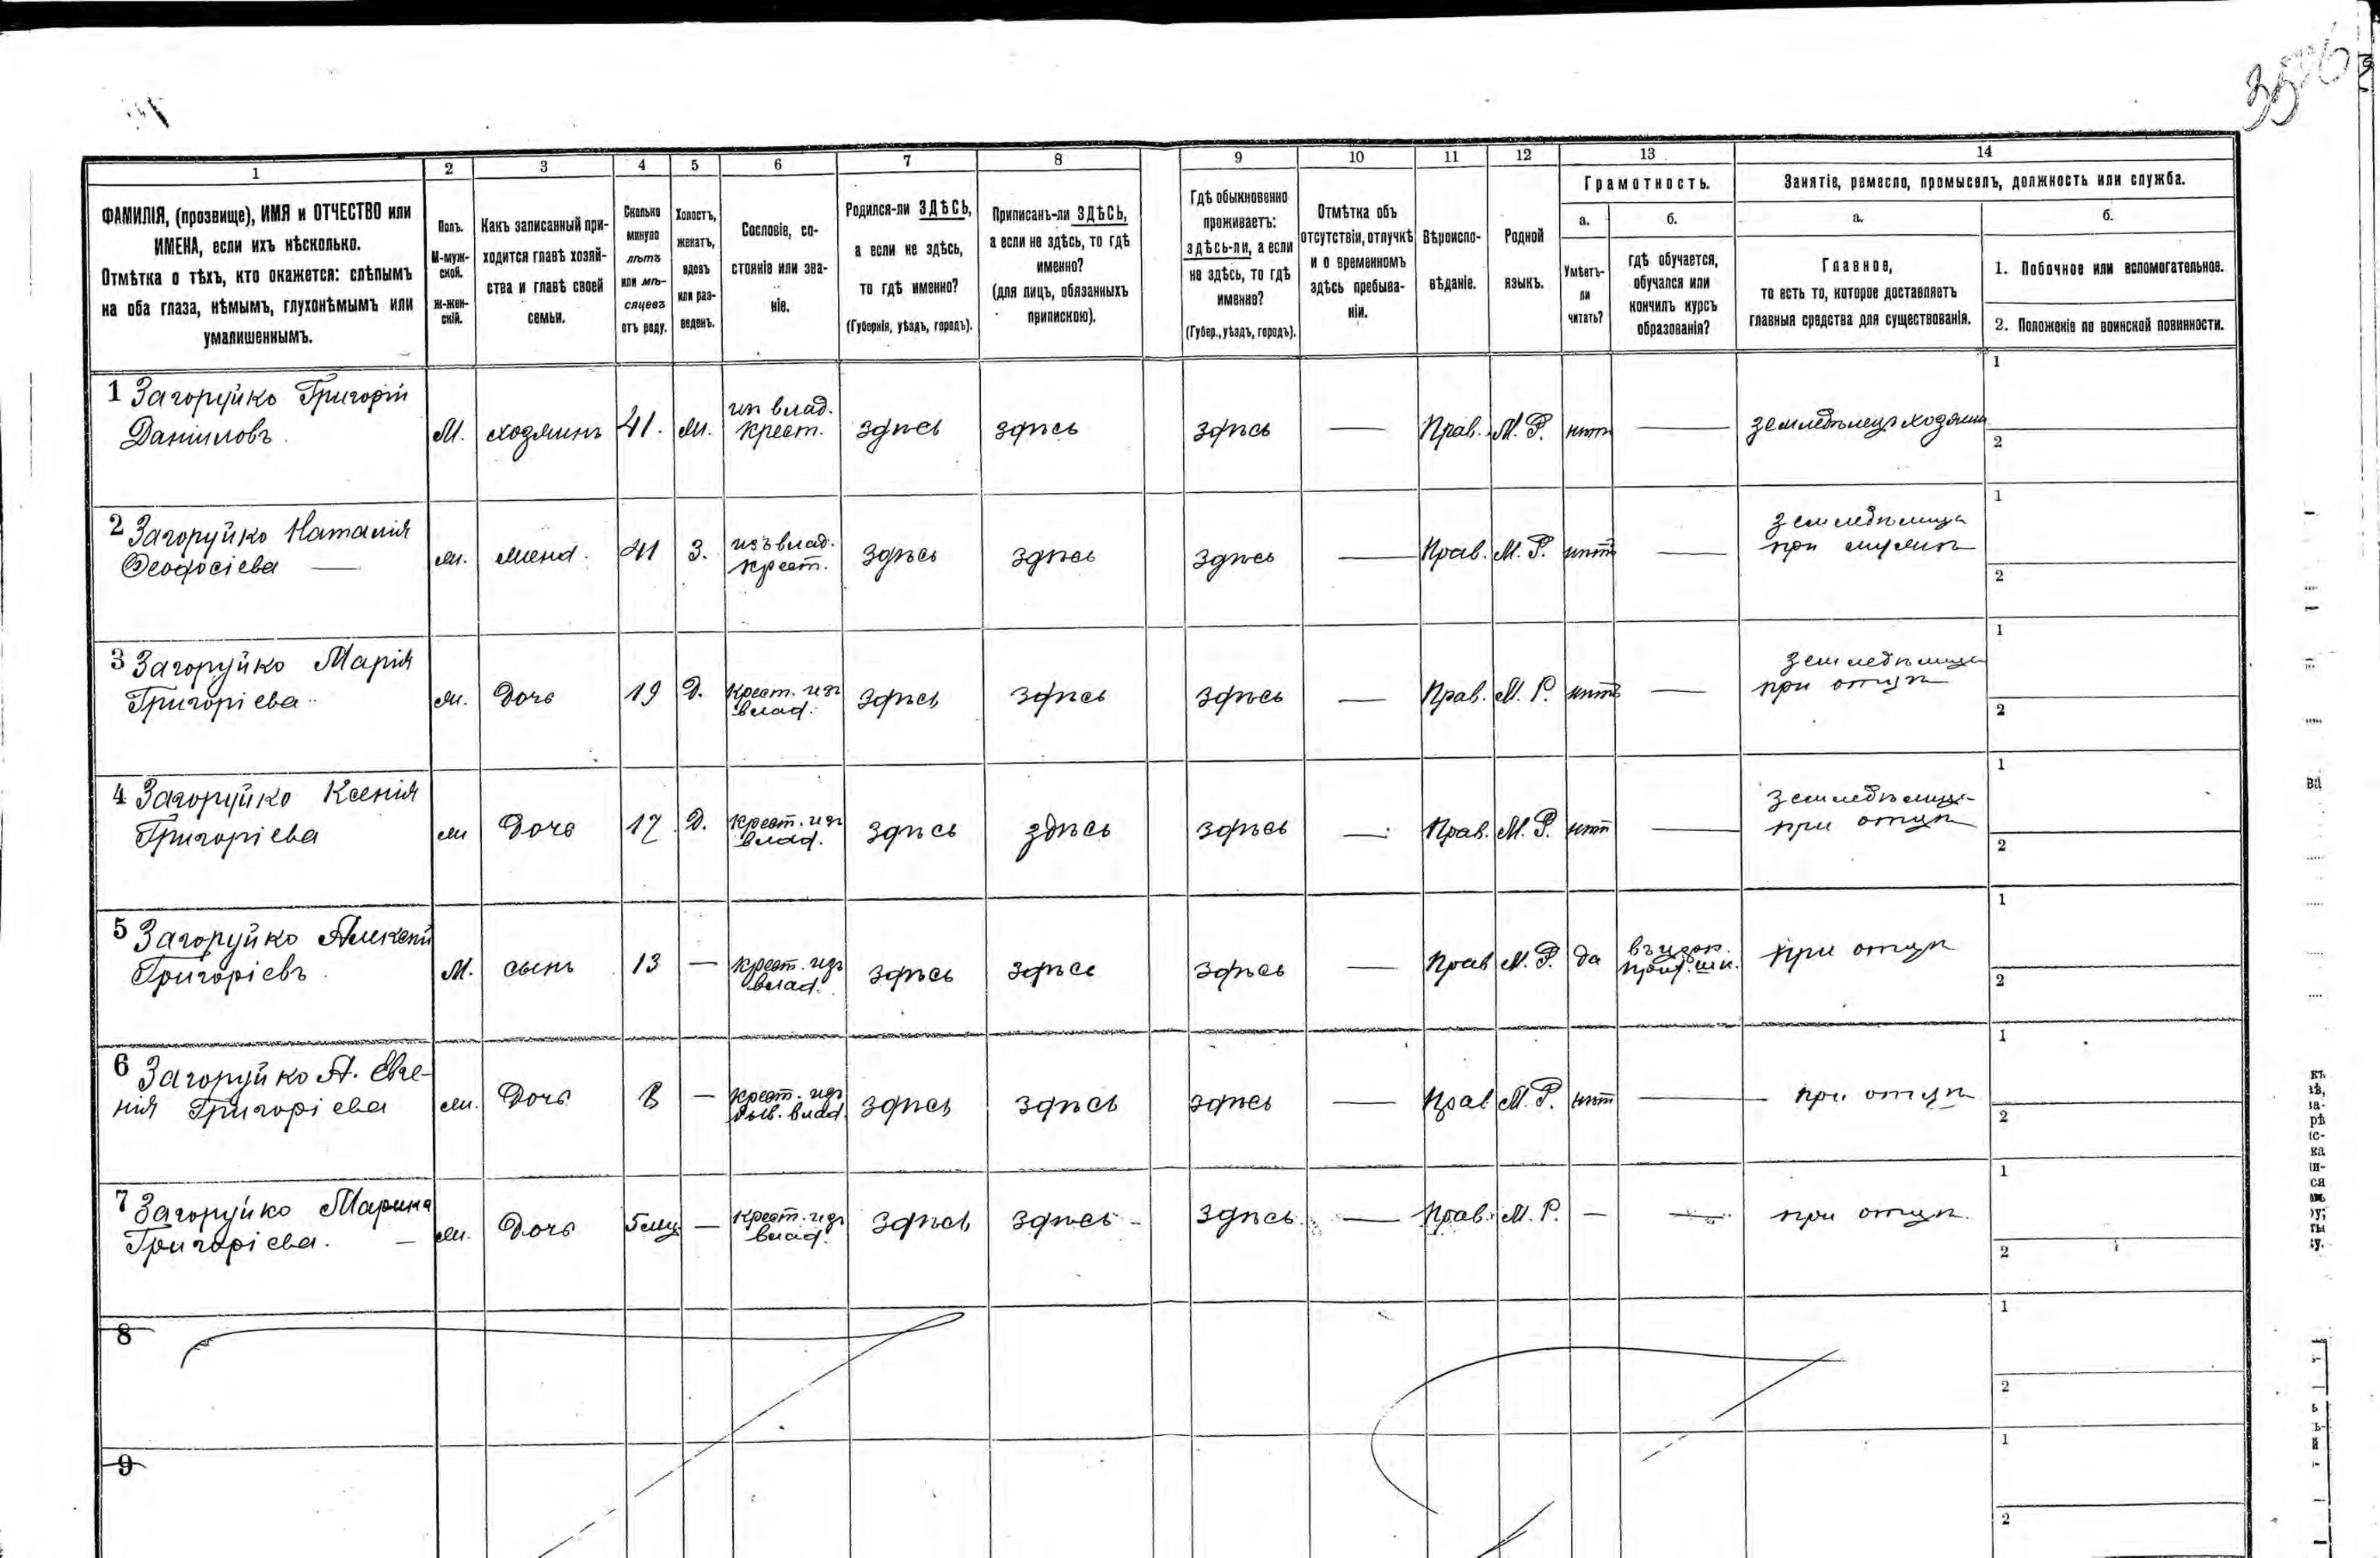 1 2 3 4 5 6 7 8 9 10 11 12 13 14
ФАМИЛІЯ, (прозвище), ИМЯ и ОТЧЕСТВО или
ИМЕНА, если ихъ нѣсколько.
Отмѣтка о тѣхъ, кто окажется: слѣпымъ
на оба глаза, нѣмымъ, глухонѣмымъ или
умалишеннымъ.
Полъ.
М-муж-
ской.
ж-жен-
скій.
Какъ записанный при-
ходится главѣ хозяй-
ства и главѣ своей
семьи.
Сколько
минуло
лѣтъ
или мѣ-
сяцевъ
отъ роду.
Холостъ,
женатъ,
вдовъ
или раз-
веденъ.
Сословіе, со-
стояніе или зва-
ніе.
Родился-ли ЗДѢСЬ,
а если не здѣсь,
то гдѣ именно?
(Губернія, уѣздъ, городъ).
Приписанъ-ли ЗДѢСЬ,
а если не здѣсь, то гдѣ
именно?
(для лицъ, обязанныхъ
припискою).
Гдѣ обыкновенно
проживаетъ:
здѣсь-ли, а если
не здѣсь, то гдѣ
именно?
(Губер., уѣздъ, городъ).
Отмѣтка объ
отсутствіи, отлучкѣ
и о временномъ
здѣсь пребыва-
ніи.
Вѣроиспо-
вѣданіе.
Родной
языкъ.
Грамотность.
а.
Умѣетъ-
ли
читать?
б.
гдѣ обучается,
обучался или
кончилъ курсъ
образованія?
Занятіе, ремесло, промыселъ, должность или служба.
а.
Главное,
то есть то, которое доставляетъ
главныя средства для существованія.
б.
1. Побочное или вспомогательное.
2. Положеніе по воинской повинности.
1 Загоруйко Григорій
Даніиловъ
М. хозяинъ 41. ж. из влад.
крест. здѣсь здѣсь здѣсь — Прав. М. Р. нѣтъ — земледѣлецъ хозяинъ
1
2
2 Загоруйко Наталія
Феодосіева —
ж. жена. 41 З. изъ влад.
крест. здѣсь здѣсь здѣсь — Прав. М. Р. нѣтъ — земледѣлица
при мужѣ
1
2
3 Загоруйко Марія
Григоріева
ж. Дочь 19 Д. Крест. изъ
влад. здѣсь здѣсь здѣсь — Прав. М. Р. нѣтъ — земледѣлица
при отцѣ
1
2
4 Загоруйко Ксенія
Григоріева
ж Дочь 17 Д. Крест. изъ
влад. здѣсь здѣсь здѣсь — Прав. М. Р. нѣт — земледѣлица
при отцѣ
1
2
5 Загоруйко Алексѣй
Григоріевъ
М. сынъ 13 — Крест. изъ
влад. здѣсь здѣсь здѣсь — Прав М. Р. да при отцѣ
1
2
6 Загоруйко А. Евге-
нія Григоріева
ж. Дочь 8 — Крест. изъ
быв. влад. здѣсь здѣсь здѣсь — Прав М. Р. нѣт — при отцѣ
1
2
7 Загоруйко Марина
Григоріева. —
ж. Дочь 5 мц — Крест. изъ
влад. здѣсь здѣсь здѣсь — Прав. М. Р. — — при отцѣ.
1
2
8
1
2
9
1
2